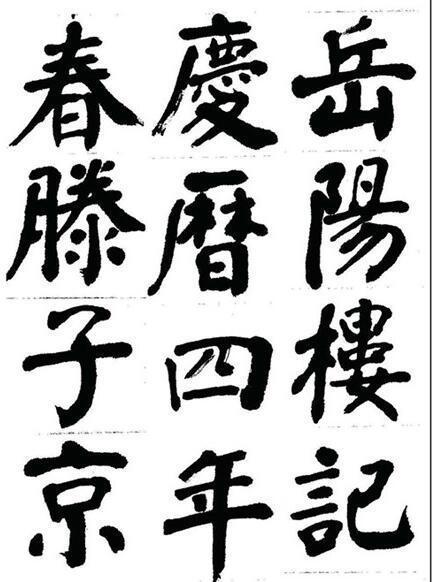 岳陽樓記
慶曆四年
春滕子京